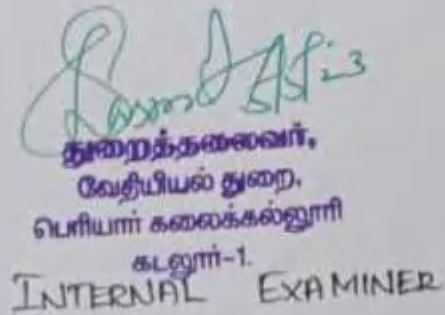 5/5/23
துறைத்தலைவர்,
வேதியியல் துறை,
பெரியார் கலைக்கல்லூரி
கடலூர்-1.
INTERNAL EXAMINER